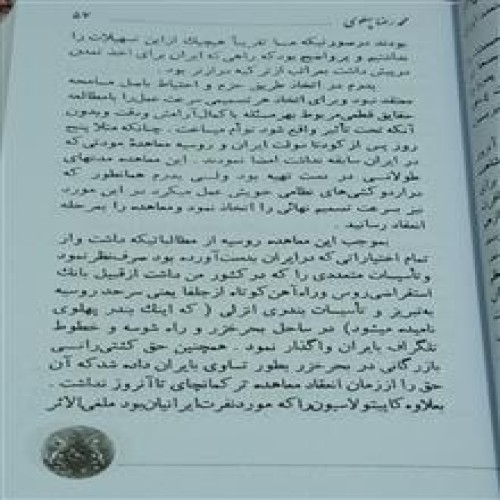 محمدرضا پهلوی ۵۲
بودند درصورتیکه ما تقریباً هیچیک ازاین تسهیلات را
نداشتیم و پرواضح بود که راهی که ایران برای اخذ تمدن
درپیش داشت بمراتب از ترکیه درازتر بود .
پدرم در اتخاذ طریق حزم و احتیاط باصل مسامحه
معتقد نبود وبرای اتخاذ هر تصمیمی سرعت عمل را بامطالعه
حقایق قطعی مربوط بهرمسئله باکمال آرامش ودقت وبدون
آنکه تحت تأثیر واقع شود توأم میساخت . چنانکه مثلا پنج
روز پس از کودتا دولت ایران و روسیه معاهدهٔ مودتی که
در ایران سابقه نداشت امضا نمودند . این معاهده مدتهای
طولانی در دست تهیه بود ولی پدرم همانطور که
دراردوکشی‌های نظامی خویش عمل میکرد در این مورد
نیز بسرعت تصمیم نهائی را اتخاذ نمود ومعاهده را بمرحله
انعقاد رسانید .
بموجب این معاهده روسیه از مطالباتیکه داشت واز
تمام اختیاراتی که درایران بدست‌آورده بود صرف‌نظر نمود
وتأسیسات متعددی را که در کشور من داشت ازقبیل بانک
استقراضی روس وراه‌آهن کوتاه از جلفا یعنی سرحد روسیه
به‌تبریز و تأسیسات بندری انزلی ( که اینک بندر پهلوی
نامیده میشود) در ساحل بحرخزر و راه شوسه و خطوط
تلگراف بایران واگذار نمود . همچنین حق کشتی‌رانی
بازرگانی در بحرخزر بطور تساوی بایران داده شد که آن
حق را اززمان انعقاد معاهده ترکمانچای تاآنروز نداشت .
بعلاوه کاپیتولاسیون را که موردنفرت ایرانیان بود ملغی‌الاثر